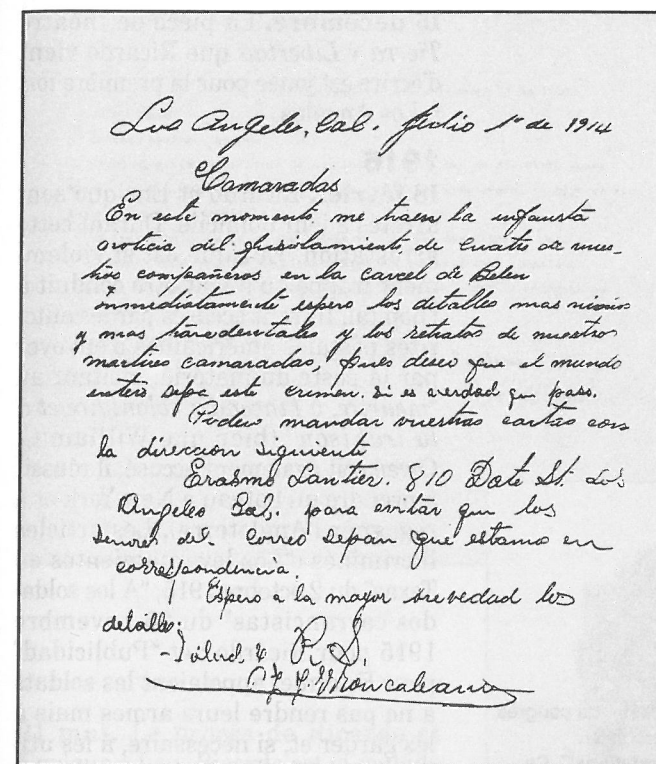 Los Angeles, Cal. Julio 1º de 1914
Camaradas
En este momento, me traen la infausta
noticia del fusilamiento de cuatro de nues-
tros compañeros en la carcel de Belen
inmediatamente espero los detalles mas nimios
y mas y los retratos de nuestros
camaradas, pues deceo que el mundo
entero sepa este crimen. si es verdad que paso.
Poden mandar vuestras cartas con
la direccion siguiente
Erasmo Lantier. 810 Date St. Los
Angeles Cal. para evitar que los
del correo separ que estamo en
correspondencia.
Espero a la mayor brevedad los
detalles.
Salud, y R. S.
Moncaleano